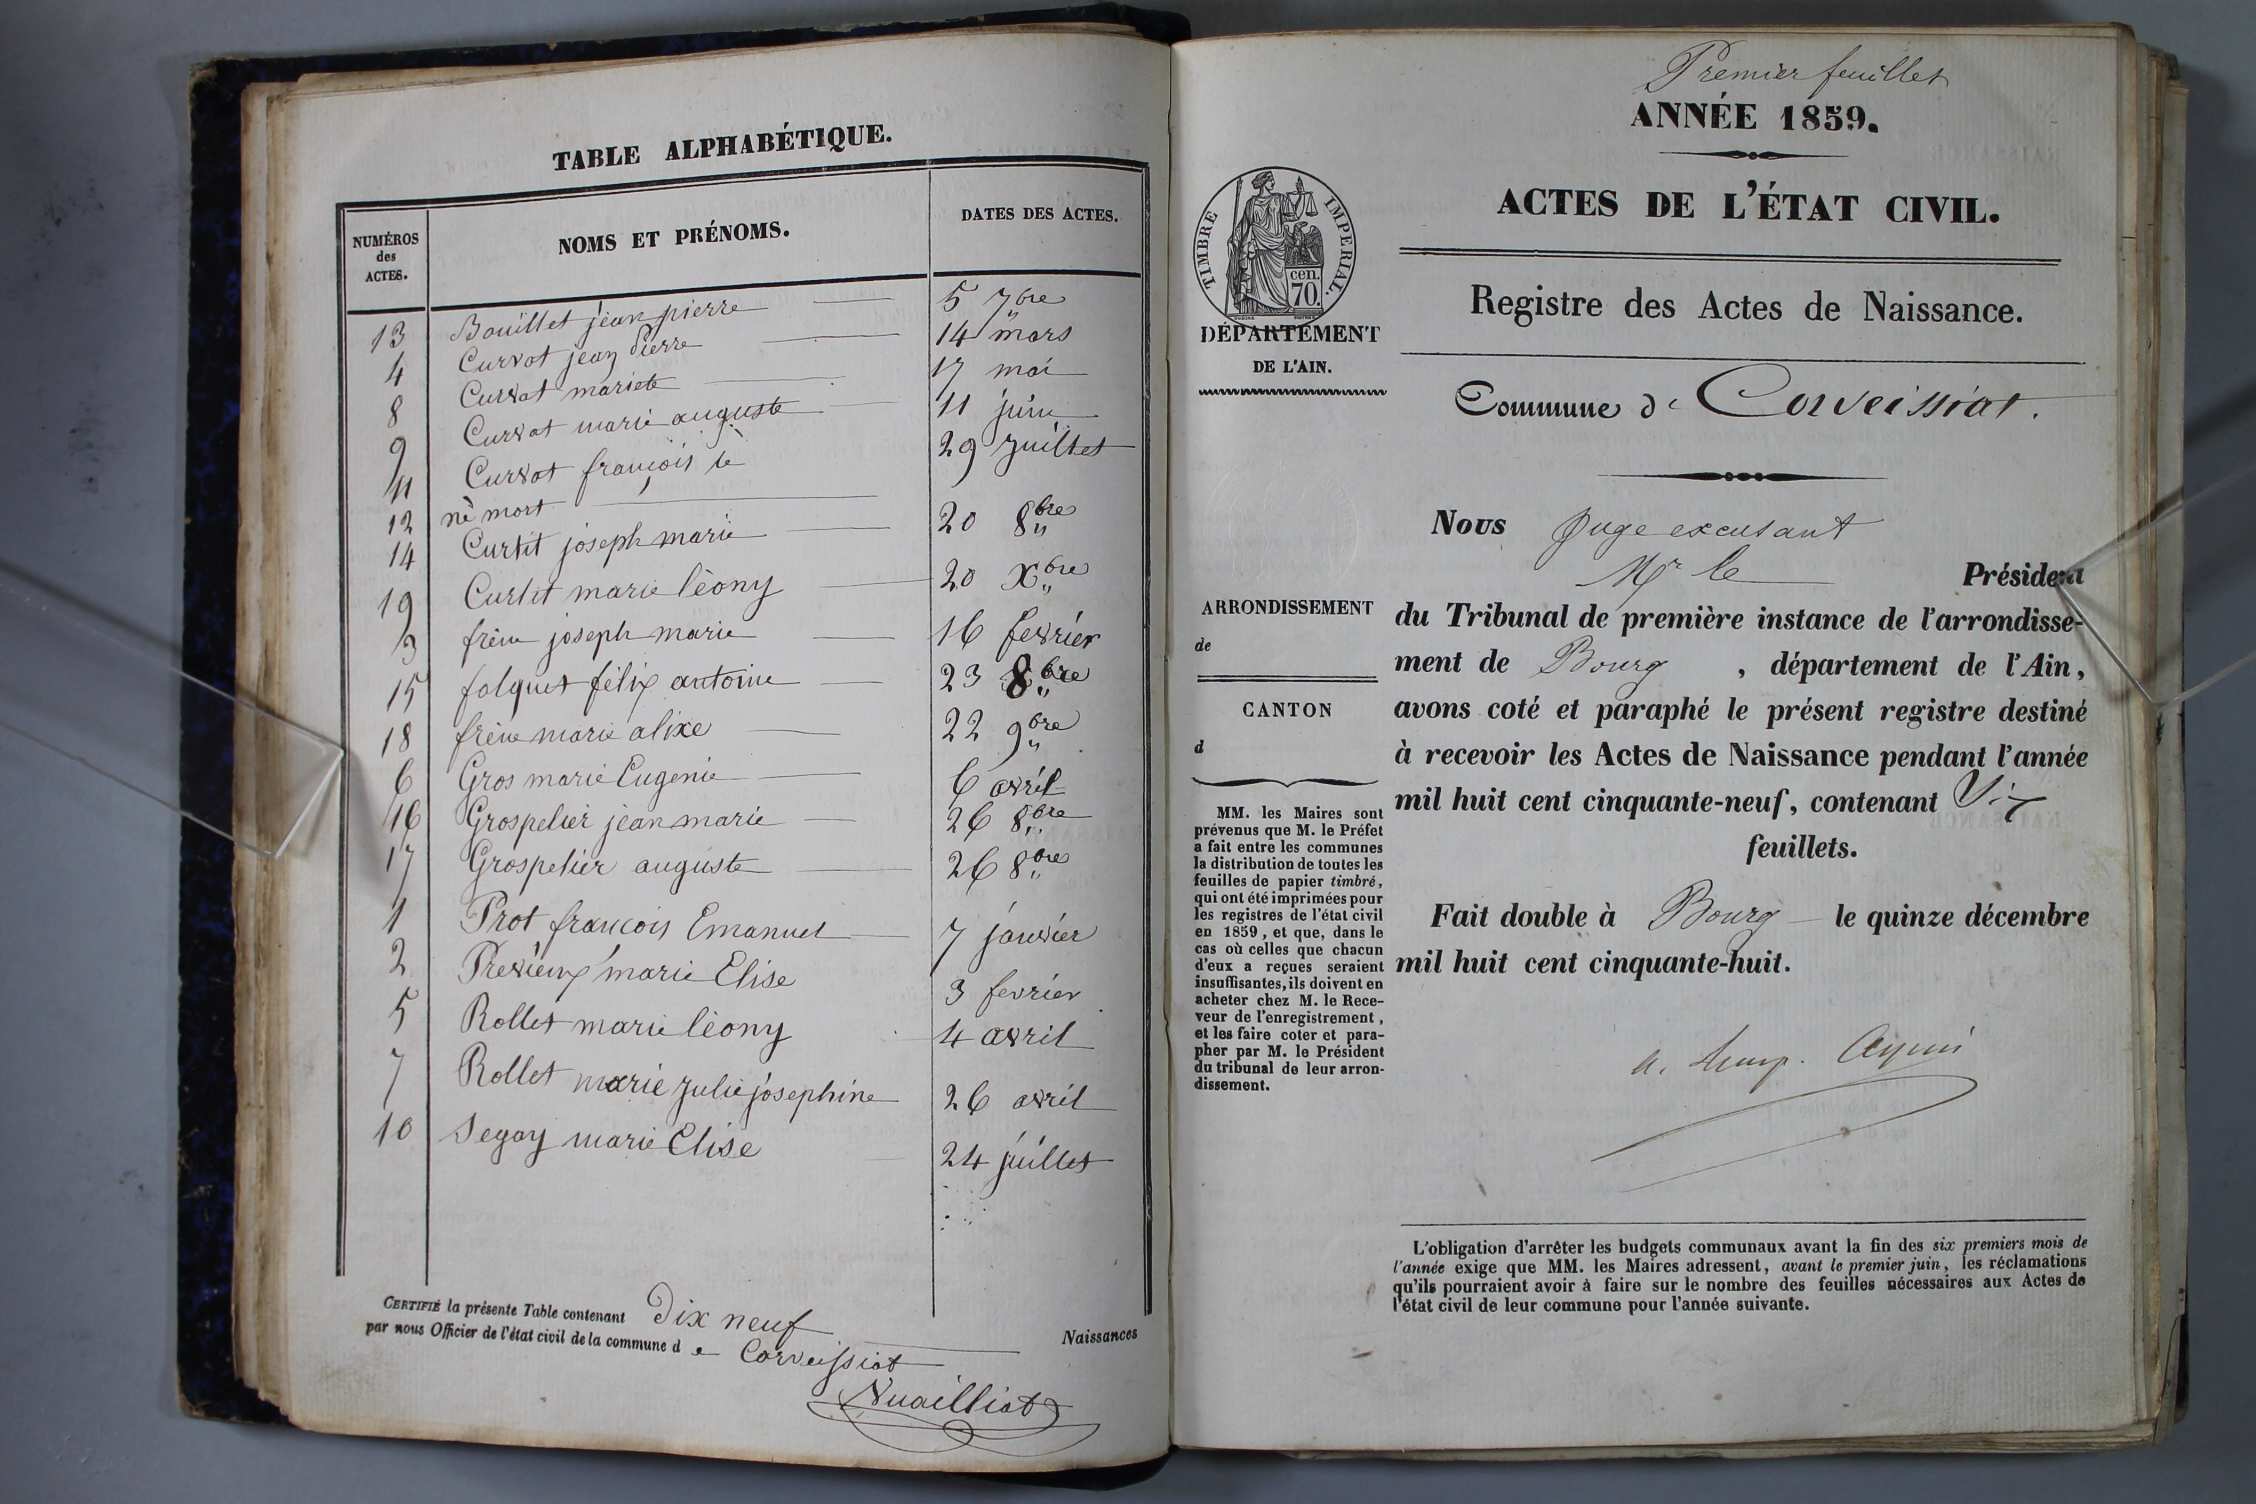 TABLE ALPHABÉTIQUE.
NUMÉROS
des
ACTES.
NOMS ET PRÉNOMS.
DATES DES ACTES.
13 Bouillet jéan pierre 5 7bre
4 Curvat jean Pierre 14 mars
8 Curvat mariete 17 mai
9 Curvat marie auguste 11 juin
11 Curvat françois 29 juillet
12 né mort
14 Curtit joseph marie 20 8bre
19 Curtit marie lèony 20 Xbre
3 frène joseph marie 16 fevrier
15 folquet félix antoine 23 8bre
18 frène marie alixe 22 9bre
6 Gros marie Eugenie 6 avril
16 Grospelier jean marie 26 8bre
17 Grospelier auguste 26 8bre
1 Prot françois Emanuel 7 janvier
2 Previeux marie Elise 3 fevrier
5 Rollet marie lèony 4 avril
7 Rollet marie julie josephine 26 avril
10 Segoy marie Elise 24 juillet
CERTIFIÉ la présente Table contenant Dix neuf Naissances
par nous Officier de l'état civil de la commune d e Corveissiat
Vuailliat
Premier feuillet
ANNÉE 1859.
ACTES DE L'ÉTAT CIVIL.
TIMBRE IMPERIAL.
cen.
70.
DÉPARTEMENT
DE L'AIN.
Registre des Actes de Naissance.
Commune de Corveissiat.
Nous Juge excusant
Mr le Président
du Tribunal de première instance de l'arrondisse-
ment de Bourg, département de l'Ain,
avons coté et paraphé le présent registre destiné
à recevoir les Actes de Naissance pendant l'année
mil huit cent cinquante-neuf, contenant
feuillets.
Fait double à Bourg le quinze décembre
mil huit cent cinquante-huit.
ARRONDISSEMENT
de
CANTON
d
MM. les Maires sont
prévenus que M. le Préfet
a fait entre les communes
la distribution de toutes les
feuilles de papier timbré,
qui ont été imprimées pour
les registres de l'état civil
en 1859, et que, dans le
cas où celles que chacun
d'eux a reçues seraient
insuffisantes, ils doivent en
acheter chez M. le Rece-
veur de l'enregistrement,
et les faire coter et para-
pher par M. le Président
du tribunal de leur arron-
dissement.
L'obligation d'arrêter les budgets communaux avant la fin des six premiers mois de
l'année exige que MM. les Maires adressent, avant le premier juin, les réclamations
qu'ils pourraient avoir à faire sur le nombre des feuilles nécessaires aux Actes de
l'état civil de leur commune pour l'année suivante.